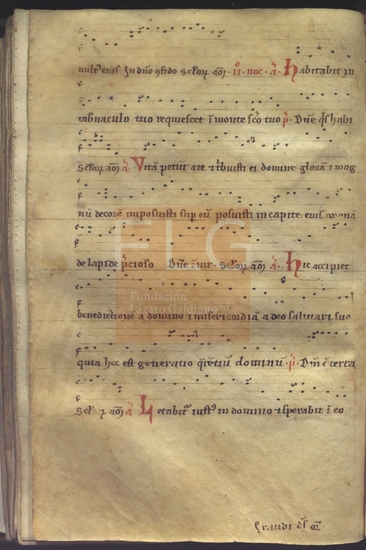 vultꝰ eius In dn̄o ꝯfido Sc̄loꝝ am̄ ii noc a̅ habitabit in
tabnaculo tuo requiescet ī monte sc̄o tuo p̄ Dn̄e q̄s habi
Sc̄loꝝ am̄ a̅ Vitā petiit a te tͥbuisti ei domine glōam ⁊ mag
nū decorē imposuisti suꝑ eū posuisti in capite eius coronā
de lapide p̄cioso Dn̄e ī uir Sc̄loꝝ am̄ a̅ hic accipiet
benedictionē a domino ⁊ misericordiā a deo salutari suo
quia hec est generatio q̄rentiū dominū p̄ Dn̄i ē terra
Sc̄loꝝ am̄ a̅ Letabitᷣ iustꝰ in domino ⁊ sperabit ī eo
FLG
Fundación
Lázaro Galdiano